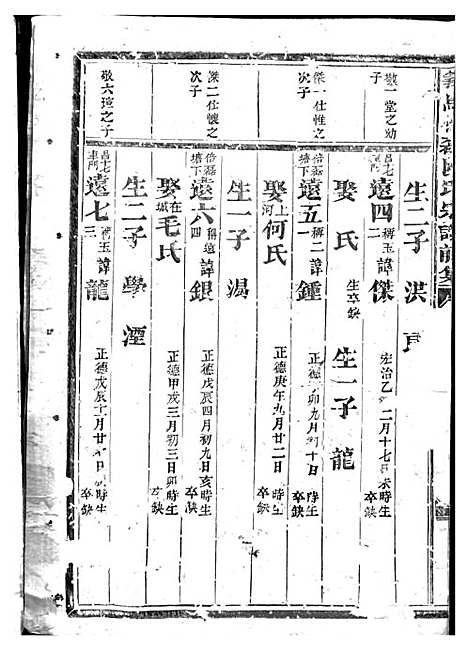 宗譜前集
敬一堂之幼子
生二子 洪
昌七 遠四二 稱玉 諱傑 二月十七日未時生 卒缺
娶 氏 生卒缺 生一子 龍
傑一仕惟之次子
塘下 遠五一 稱二 諱鍾 卯九月初十日 時生 卒缺
娶上河何氏 正德庚午九月廿二日 時生 卒缺
生一子 湯
傑二仕懷之次子
塘下 遠六四 稱遠 諱銀 正德戊辰四月初九日亥時生 卒缺
娶在城毛氏 正德甲戌三月初三日卯時生 卒缺
生二子 學 湮
敬六瑄之子
昌七 遠七三 稱玉 諱龍 正德戊辰十月廿 日 時生 卒缺